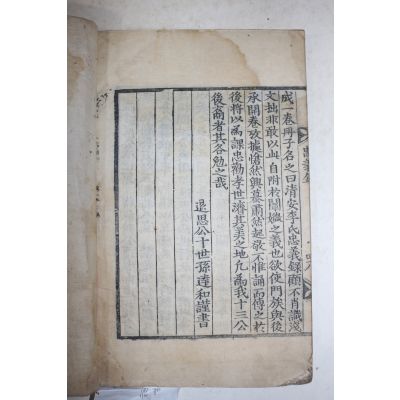 成一卷冊子名之曰清安李氏忠義錄顧不肖識淺
文拙非敢以此自附於闡媺之義也欲使門族與後
承開卷攷據愴然興慕肅然起敬不惟誦而傳之於
後將以為課忠勸孝世濟其美之地凡為我十三公
後裔者其各勉之哉
退思公十世孫達和謹書
忠義錄